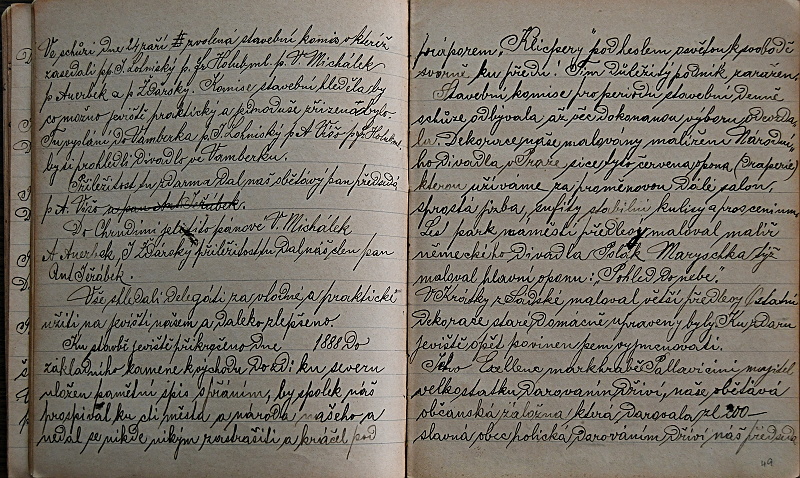 Ve schůzi dne 24 září zvolená stavební komise o kteříž
zasedali pp. J. Lotnický p. Fr. Holub ml. p. V. Michálek
p. Auerbek a p. Žďárský. Komise stavební hleděla by
co možno jeviště praktický a jednoduše zřízená bylo.
Tu vysláni do Vamberka p. J. Lotnický p. A. Víšo p. Fr. Holub ml.
by si prohlédli Divadlo ve Vamberku.
Příležitost tu zdarma dal náš obětavý pan předseda
p. A. Víšo a pan Ant. Jeřábek.
Do Chrudimi jelo pánové V. Michálek
A. Auerbek, J. Žďárský příležitost tu dal náš člen pan
Ant. Jeřábek.
Vše shledali delegáti za vhodné a praktické
užíti na jevišti našem a daleko zlepšeno.
Ku stavbě jeviště přikročeno dne 1888 Do
základního kamene k východu Do zdi ku severu
uložen pamětní spis s přáním, by spolek náš
prospíval ku cti města a národa našeho a
nedal se nikde nikým zastrašiti a kráčel pod
práporem „Klicpery" pod heslem osvětou k svobodě
svorně ku předu! Tím důležitý podnik zaražen.
Stavební komise pro periodu stavební denně
schůze odbývala až vše dokonanou výboru odevzda-
la. Dekorace naše malovány malířem Národní-
ho Divadla v Praze sice tyto červená opona (Draperie)
kterou užíváme za proměnovou Dále salon,
sprostá jizba, sufity stabilní kulisy a proscenium.
Les park náměstí předlohy maloval malíř
německého Divadla Polák Maryschka týž
maloval hlavní oponu: „Pohled do nebe".
V. Krotky z Sadské maloval větší předlohy Ostatní
Dekorace staré Domácně upraveny byly. Ku zdaru
jeviště opět povinen jsem vyjmenovati.
Jeho Excellenc markhrabě Pallavicini majitel
velkostatku darováním Dříví, naše obětavá
občanská záložna, která Darovala zl. 200 —
slavná obec holická darováním dříví náš předseda
49